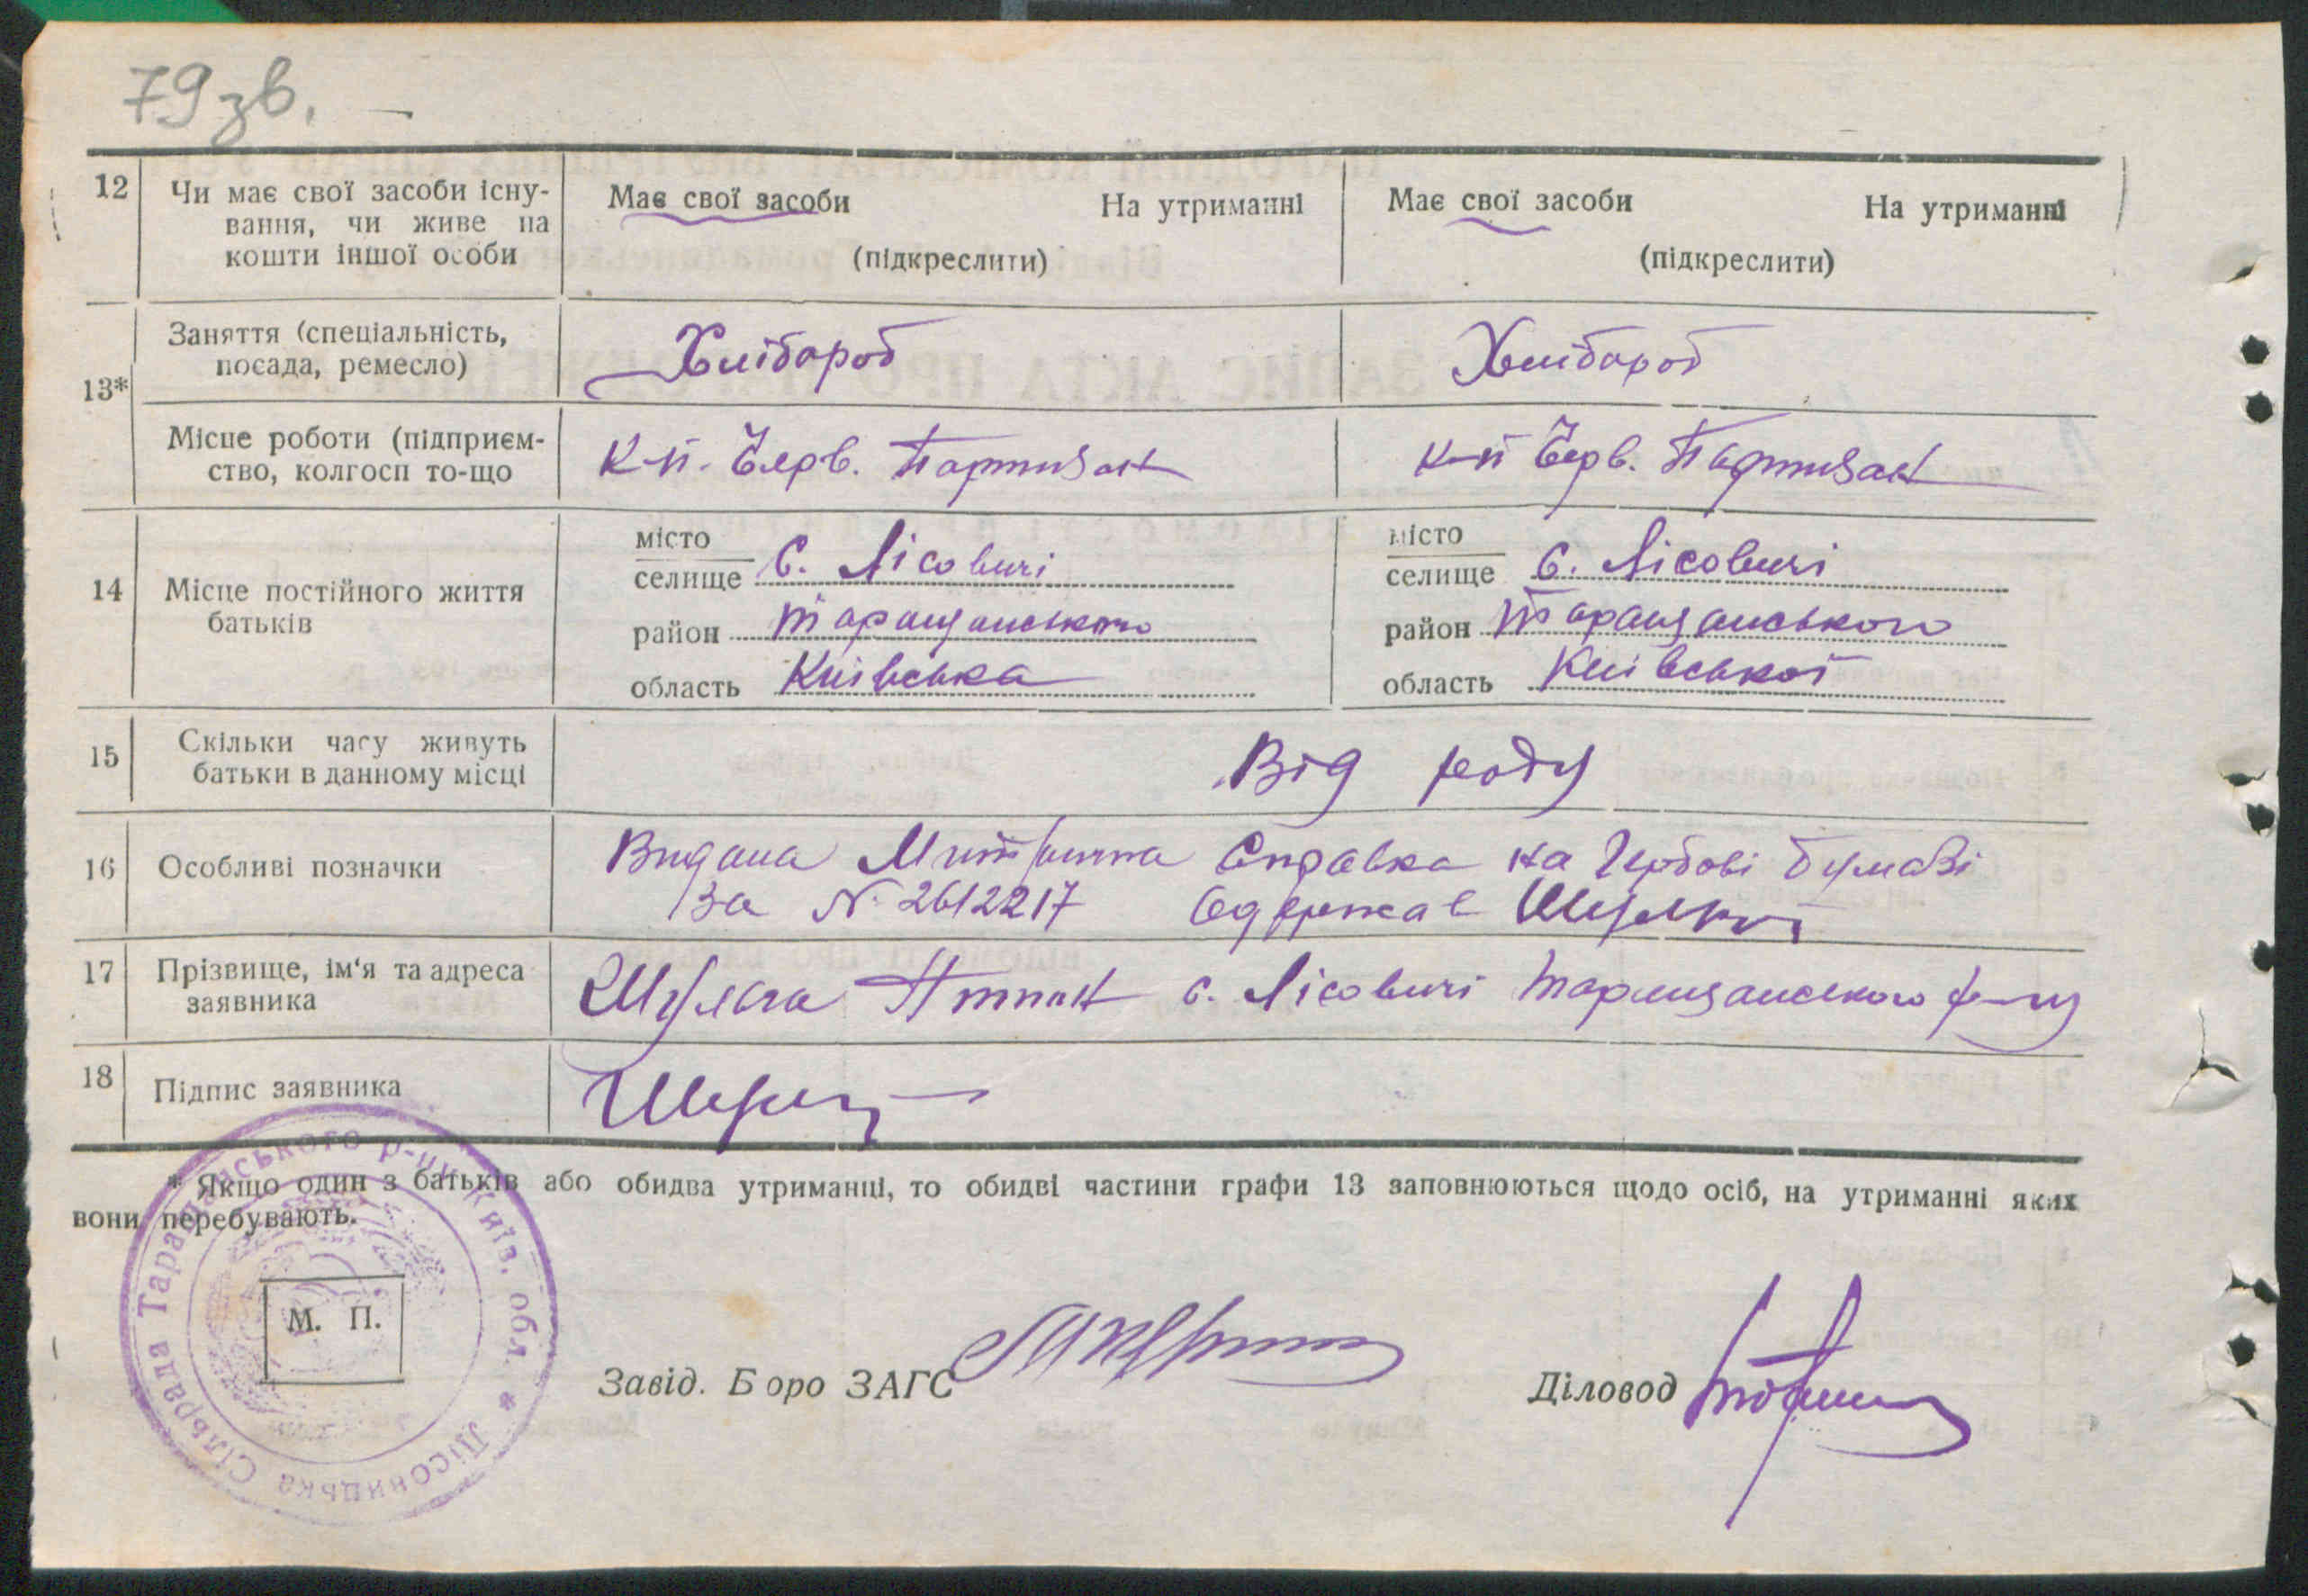 79 зв.
12 Чи має свої засоби існу-
вання, чи живе на
кошти іншої особи
Має свої засоби На утриманні
(підкреслити)
Має свої засоби На утриманні
(підкреслити)
13*
Заняття (спеціальність,
посада, ремесло)
Хлібороб
Хлібороб
Місце роботи (підприєм-
ство, колгосп то-що
К-п. Черв. Партизан
К-п Черв. Партизан
14 Місце постійного життя
батьків
місто
селище с. Лісовичі
район Таращанського
область Київська
місто
селище с. Лісовичі
район Таращанського
область Київської
15 Скільки часу живуть
батьки в данному місці
Від роду
16 Особливі позначки
Видана Митрична Справка на Гербові бумазі
За № 2612217 Одержав
17 Прізвище, ім'я та адреса
заявника
Шуляга Антин с. Лісовичі Таращанського р-ну
18 Підпис заявника
* Якщо один з батьків або обидва утриманці, то обидві частини графи 13 заповнюються щодо осіб, на утриманні яких
вони перебувають.
Лісовицька Сільрада Таращанського р-ну Київ. обл. *
М. П.
Завід. Бюро ЗАГС
Діловод